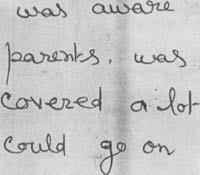 was aware
parents, was
covered a lot
could go on